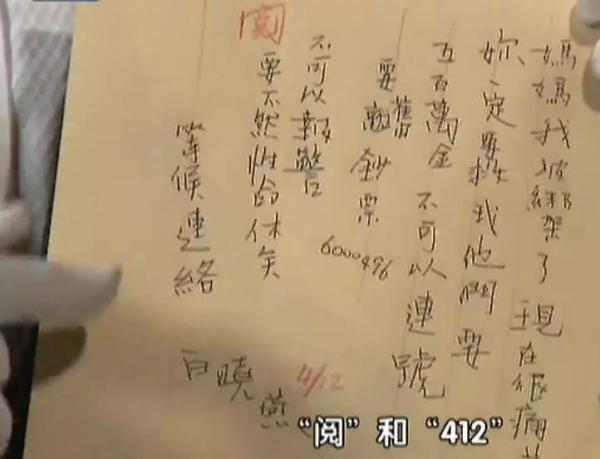 媽媽我被綁架了現在很痛苦
妳一定要救我他們要
五百萬金不可以連號
要舊鈔票
6000496
不可以報警
要不然性命休矣
等候連絡
白曉燕
閱
4/12
“阅”和“412”